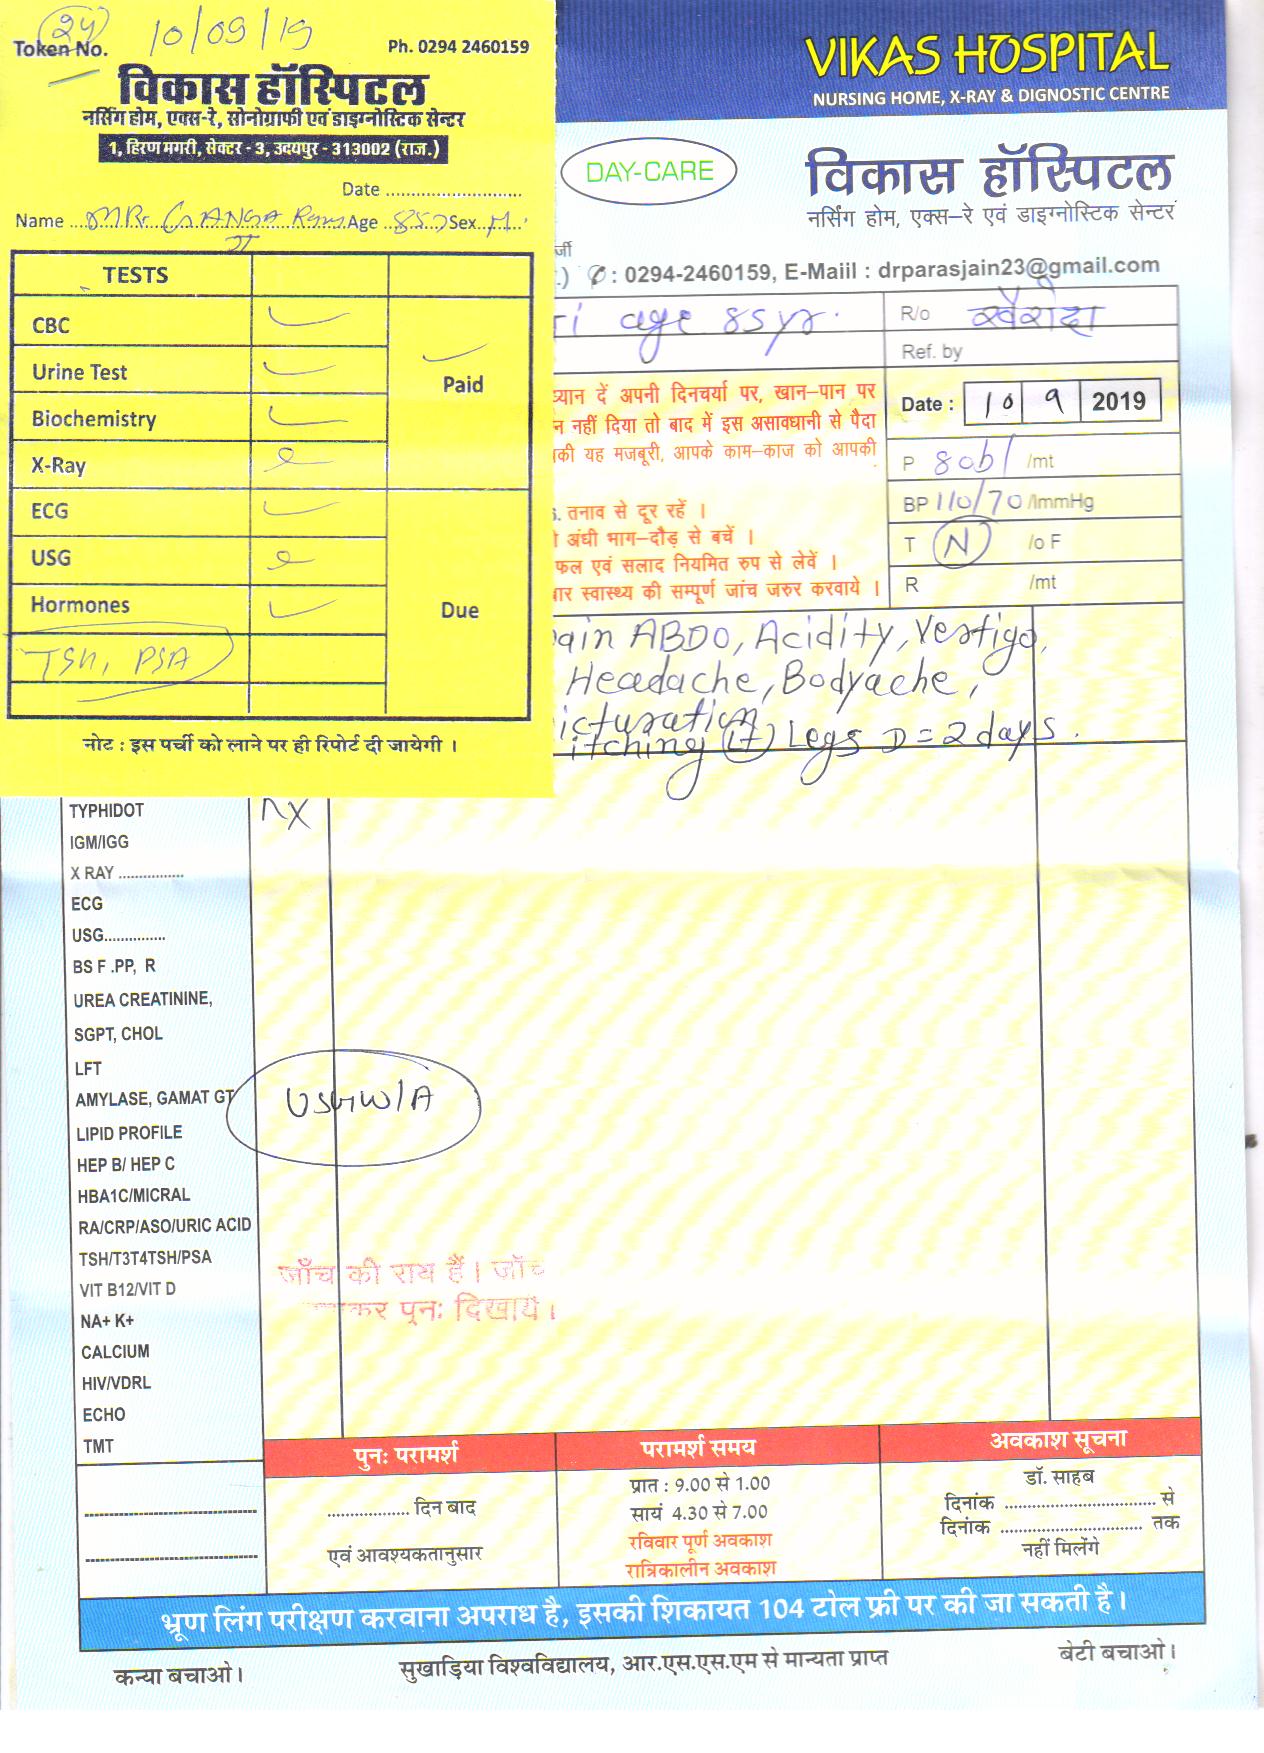 24
Token No. 10/09/19 Ph. 0294 2460159
विकास हॉस्पिटल
नर्सिंग होम, एक्स-रे, सोनोग्राफी एवं डाइग्नोस्टिक सेन्टर
1, हिरण मगरी, सेक्टर - 3, उदयपुर - 313002 (राज.)
Date ..........................
Name MR. GANGA Ram Age 85 Sex M.
JI
TESTS
CBC
Urine Test
Paid
Biochemistry
X-Ray
ECG
USG
Hormones
Due
TSH, PSA
नोट : इस पर्ची को लाने पर ही रिपोर्ट दी जायेगी ।
VIKAS HOSPITAL
NURSING HOME, X-RAY & DIGNOSTIC CENTRE
DAY-CARE
विकास हॉस्पिटल
नर्सिंग होम, एक्स-रे एवं डाइग्नोस्टिक सेन्टर
र्जी
.) ✆ : 0294-2460159, E-Maiil : drparasjain23@gmail.com
Ti age 85yr. R/o खैरोदा
Ref. by
यान दें अपनी दिनचर्या पर, खान-पान पर
न नहीं दिया तो बाद में इस असावधानी से पैदा
की यह मजबूरी, आपके काम-काज को आपकी
. तनाव से दूर रहें ।
अंधी भाग-दौड़ से बचें ।
फल एवं सलाद नियमित रुप से लेवें ।
बार स्वास्थ्य की सम्पूर्ण जांच जरुर करवाये ।
Date : 10 9 2019
P 80b/ /mt
BP 110/70 /lmmHg
T N /o F
R /mt
ain ABDO, Acidity, Vertigo,
Headache, Bodyache,
icturation
itching (Lt) Legs D = 2 days.
TYPHIDOT
RX
IGM/IGG
X RAY ................
ECG
USG...............
BS F .PP, R
UREA CREATININE,
SGPT, CHOL
LFT
AMYLASE, GAMAT GT
USG W/A
LIPID PROFILE
HEP B/ HEP C
HBA1C/MICRAL
RA/CRP/ASO/URIC ACID
TSH/T3T4TSH/PSA
VIT B12/VIT D
NA+ K+
CALCIUM
HIV/VDRL
ECHO
TMT
जाँच की राय हैं। जाँच
कर पुनः दिखायें।
पुनः परामर्श
.................. दिन बाद
एवं आवश्यकतानुसार
परामर्श समय
प्रात : 9.00 से 1.00
सायं 4.30 से 7.00
रविवार पूर्ण अवकाश
रात्रिकालीन अवकाश
अवकाश सूचना
डॉ. साहब
दिनांक ................................ से
दिनांक .............................. तक
नहीं मिलेंगे
भ्रूण लिंग परीक्षण करवाना अपराध है, इसकी शिकायत 104 टोल फ्री पर की जा सकती है।
कन्या बचाओ। सुखाड़िया विश्वविद्यालय, आर.एस.एस.एम से मान्यता प्राप्त बेटी बचाओ।